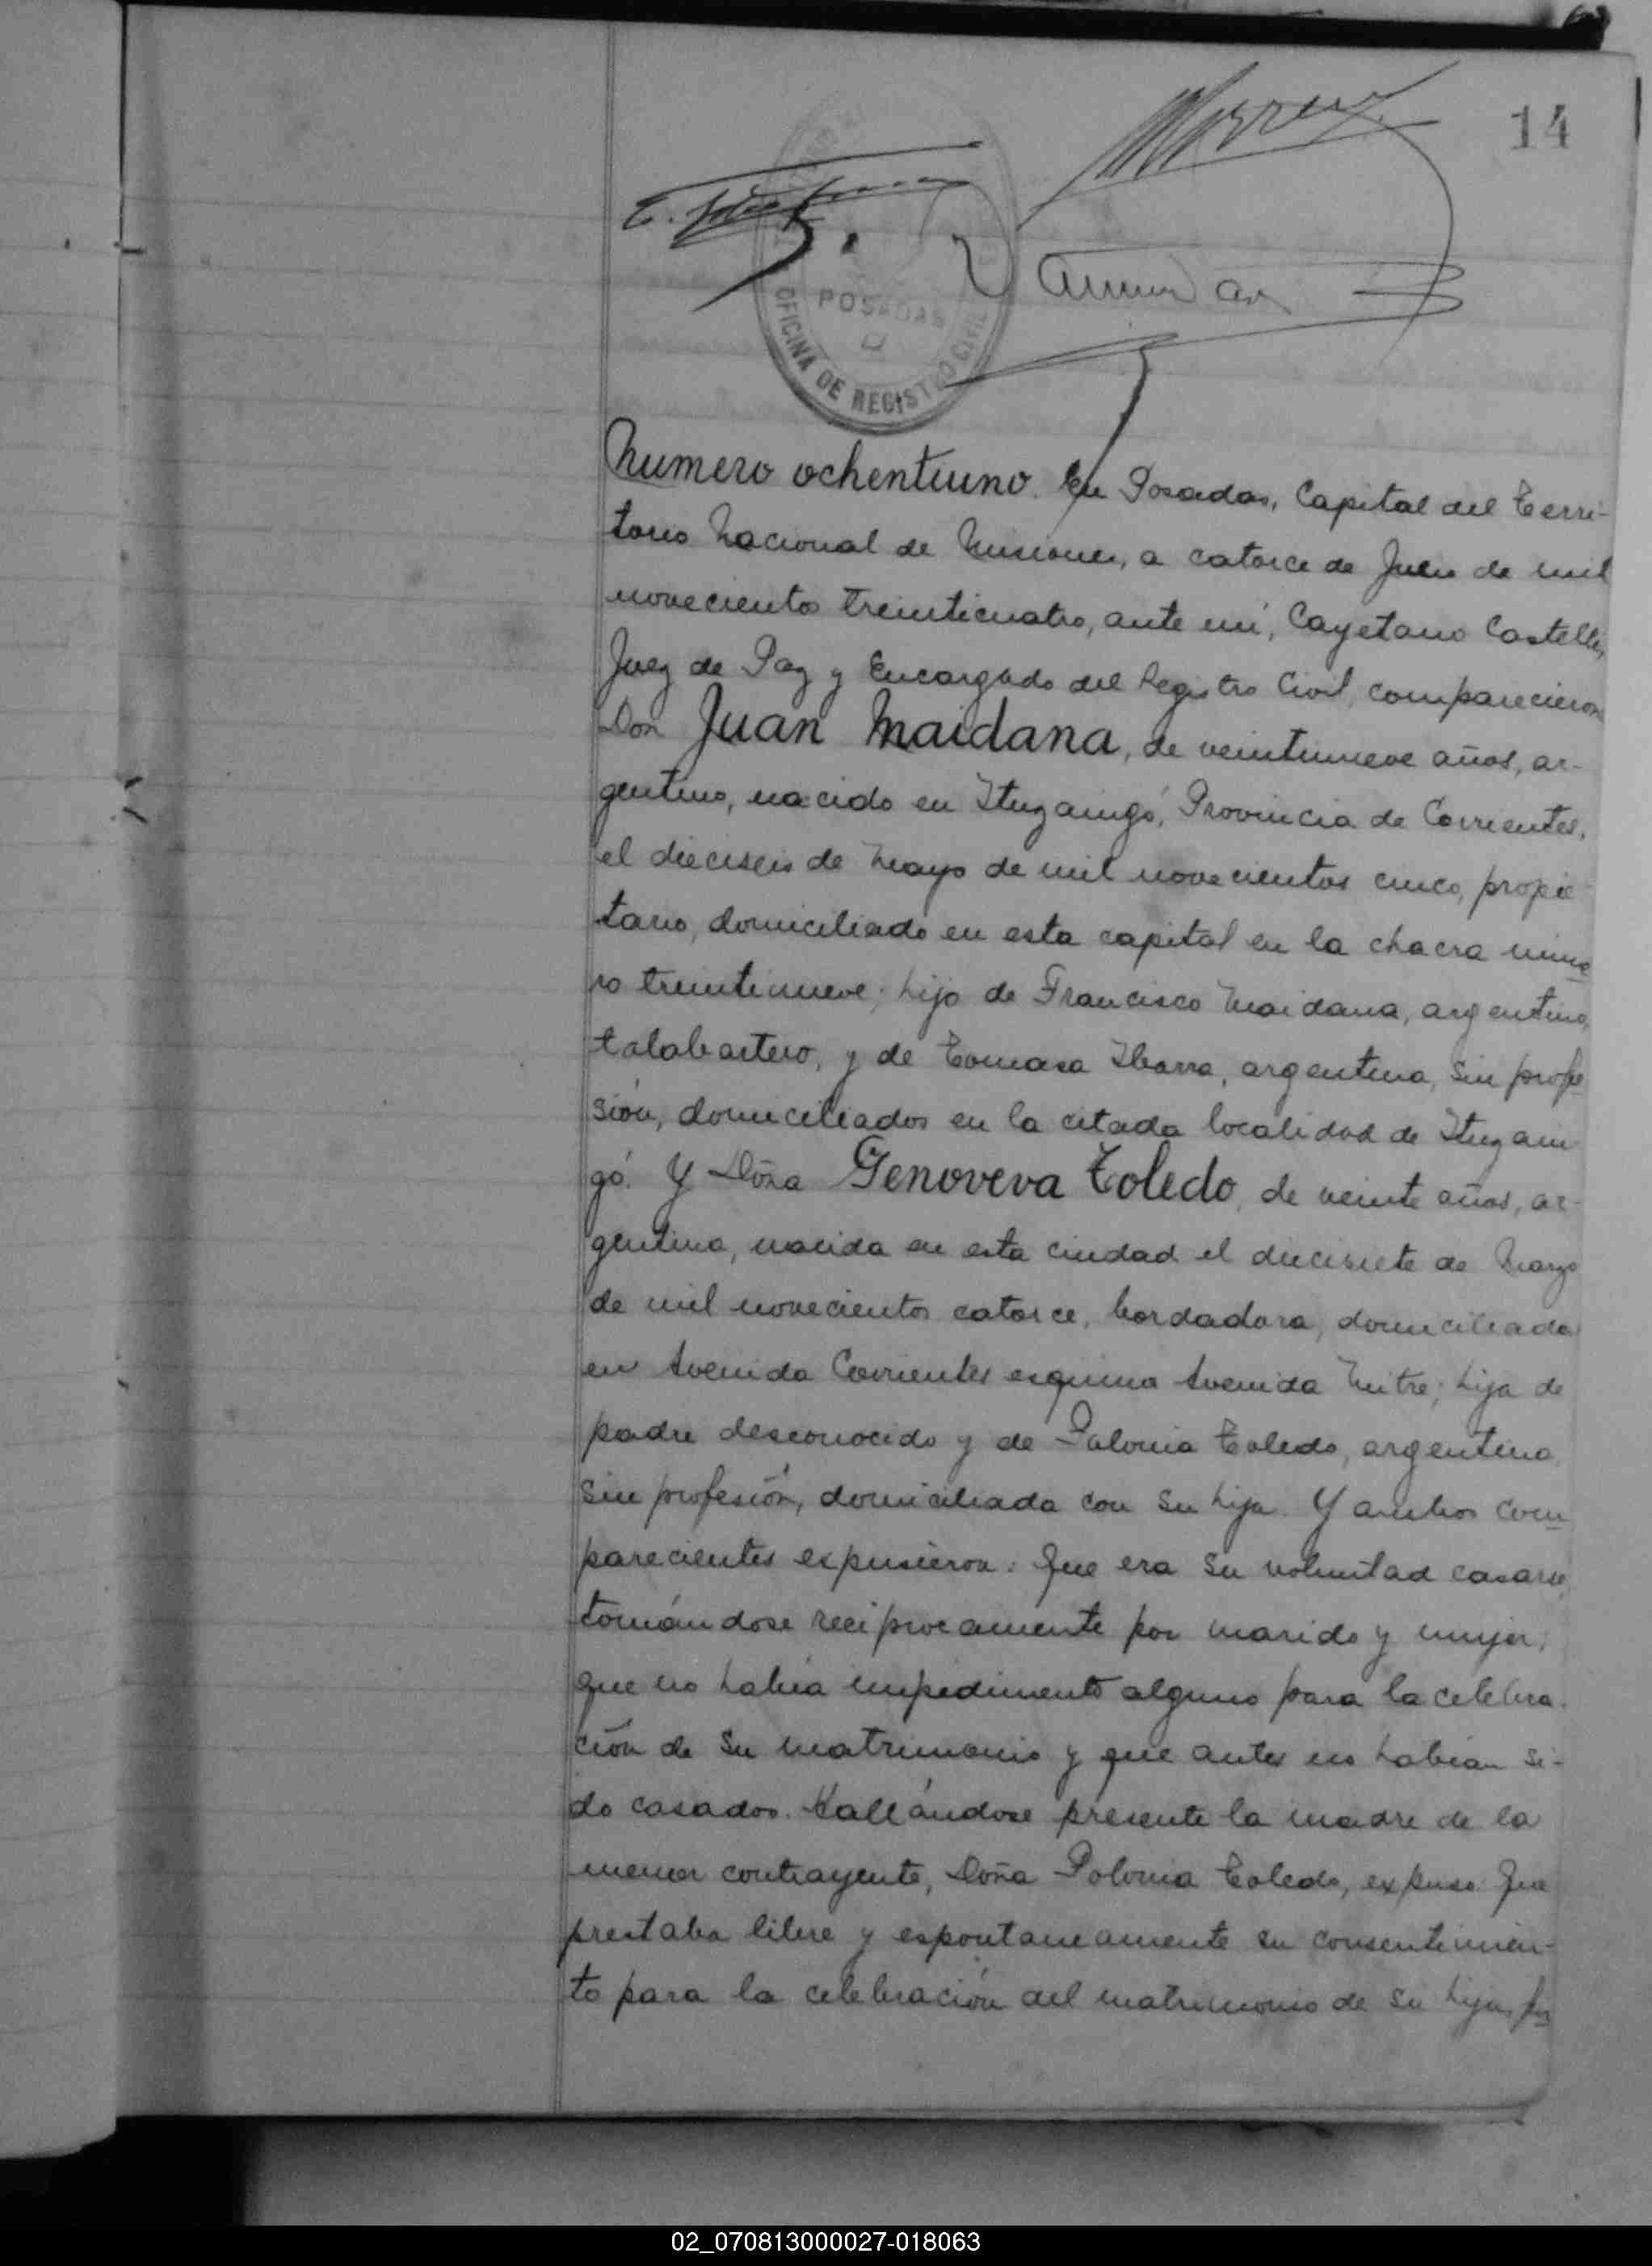 14
POSADAS
OFICINA DE REGISTRO CIVIL
Numero ochentiuno. En Posadas, Capital del Terri-
torio Nacional de Misiones, a catorce de Julio de mil
novecientos treinticuatro, ante mí, Cayetano Castelli,
Juez de Paz y Encargado del Registro Civil, comparecieron
Don Juan Maidana, de veintinueve años, ar-
gentino, nacido en Ituzaingó, Provincia de Corrientes,
el dieciseis de Mayo de mil novecientos cinco, propie-
tario, domiciliado en esta capital en la chacra núme
ro treintinueve; hijo de Francisco Maidana, argentino,
talabartero, y de Tomasa Ibarra, argentina, sin profe
sión, domiciliados en la citada localidad de Ituzain
gó. Y Doña Genoveva Toledo, de veinte años, ar-
gentina, nacida en esta ciudad el diecisiete de Marzo
de mil novecientos catorce, bordadora, domiciliada
en Avenida Corrientes esquina Avenida Mitre; hija de
padre desconocido y de Polonia Toledo, argentina,
sin profesión, domiciliada con su hija. Y ambos com
parecientes expusieron: Que era su voluntad casarse,
tomándose reciprocamente por marido y mujer;
que no había impedimento alguno para la celebra-
ción de su matrimonio y que antes no habían si-
do casados. Hallándose presente la madre de la
menor contrayente, Doña Polonia Toledo, expuso: Que
prestaba libre y espontaneamente su consentimien-
to para la celebración del matrimonio de su hija, por
02_070813000027-018063